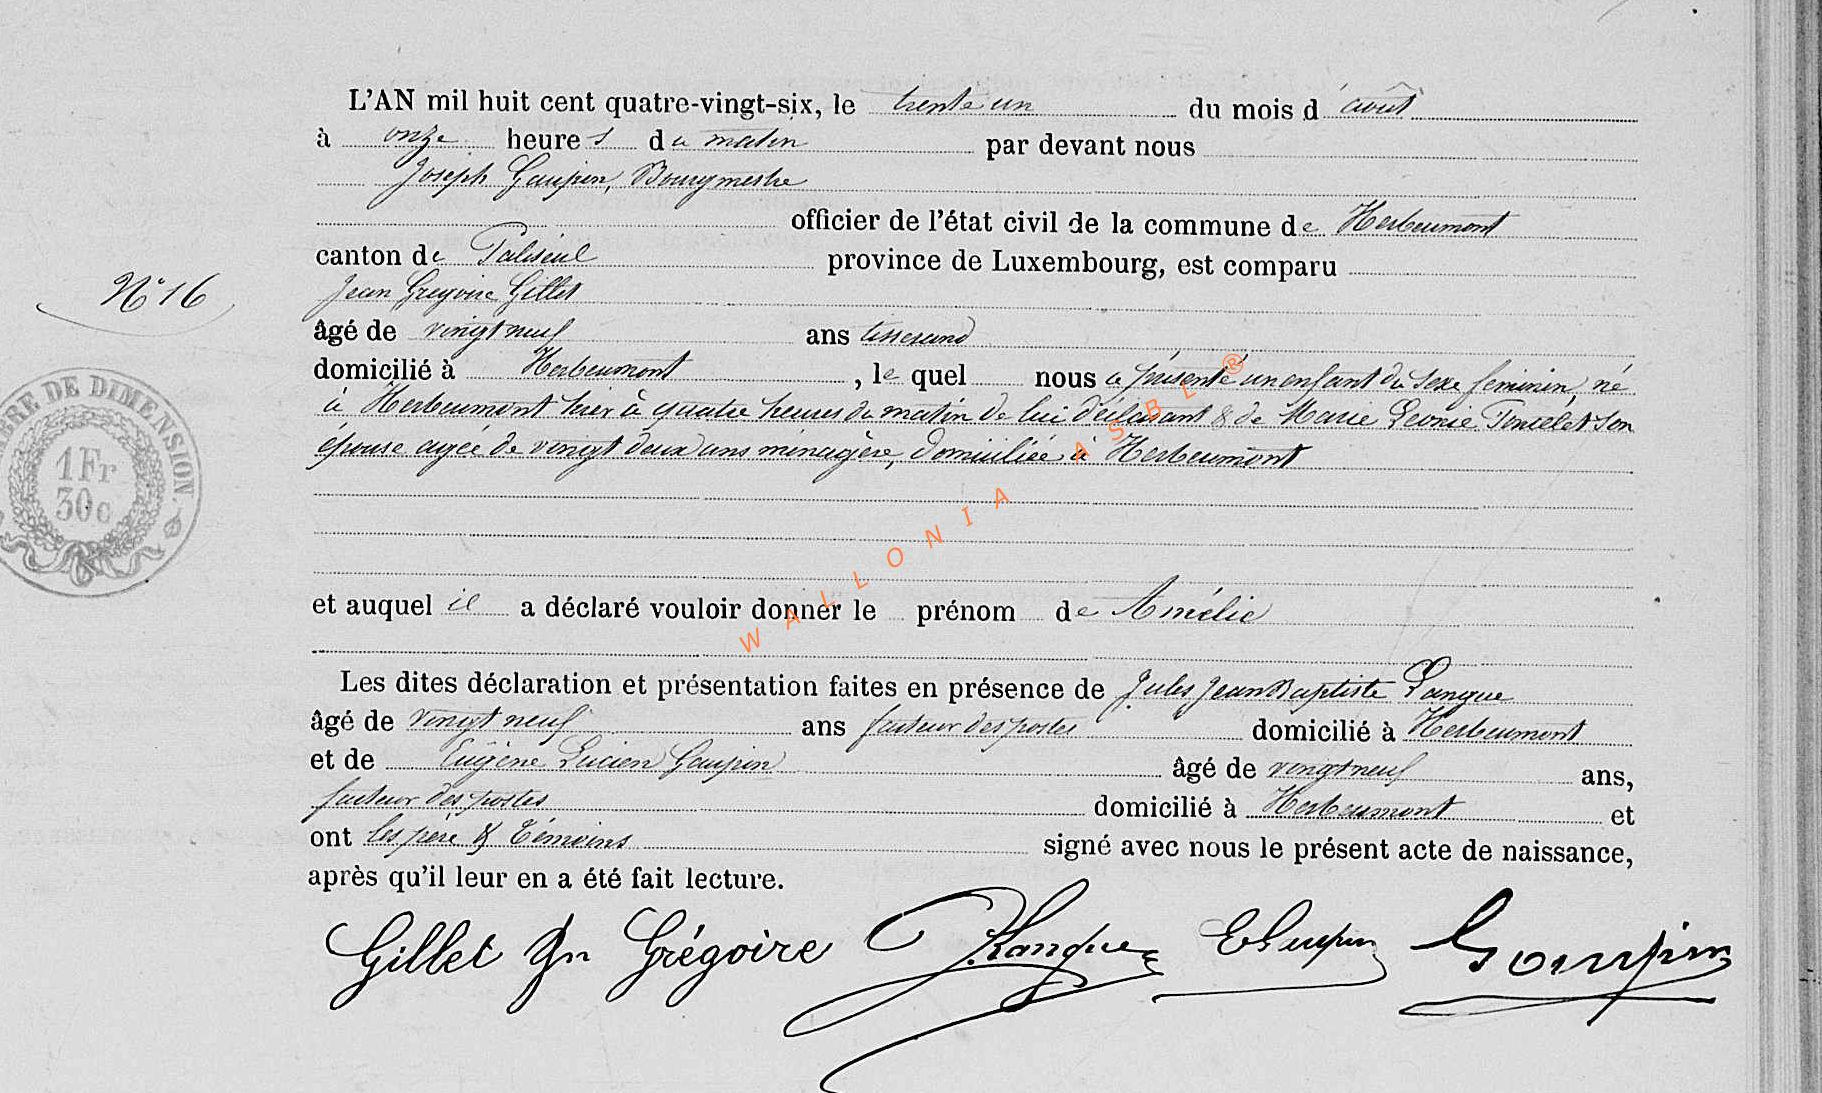 L'AN mil huit cent quatre-vingt-six, le trente un du mois d'août
à onze heures du matin par devant nous
Joseph Gaupin, Bourgmestre
officier de l'état civil de la commune de Herbeumont
canton de Paliseul province de Luxembourg, est comparu
Jean Grégoire Gillet
N° 16
âgé de vingt neuf ans tisserand
domicilié à Herbeumont, le quel nous a présenté un enfant du sexe féminin, né
à Herbeumont hier à quatre heures du matin de lui déclarant & de Marie Léonie Poncelet son
épouse agée de vingt deux ans ménagère, domiciliée à Herbeumont
TIMBRE DE DIMENSION
1 Fr
30c
WALLONIA ASBL ®
et auquel il a déclaré vouloir donner le prénom de Amélie
Les dites déclaration et présentation faites en présence de Jules Jean Baptiste Langue
âgé de vingt neuf ans facteur des postes domicilié à Herbeumont
et de Eugène Lucien Gaupin âgé de vingt neuf ans,
facteur des postes domicilié à Herbeumont et
ont les père & témoins signé avec nous le présent acte de naissance,
après qu'il leur en a été fait lecture.
Gillet Jn Grégoire J. Langue E Gaupin Gaupin